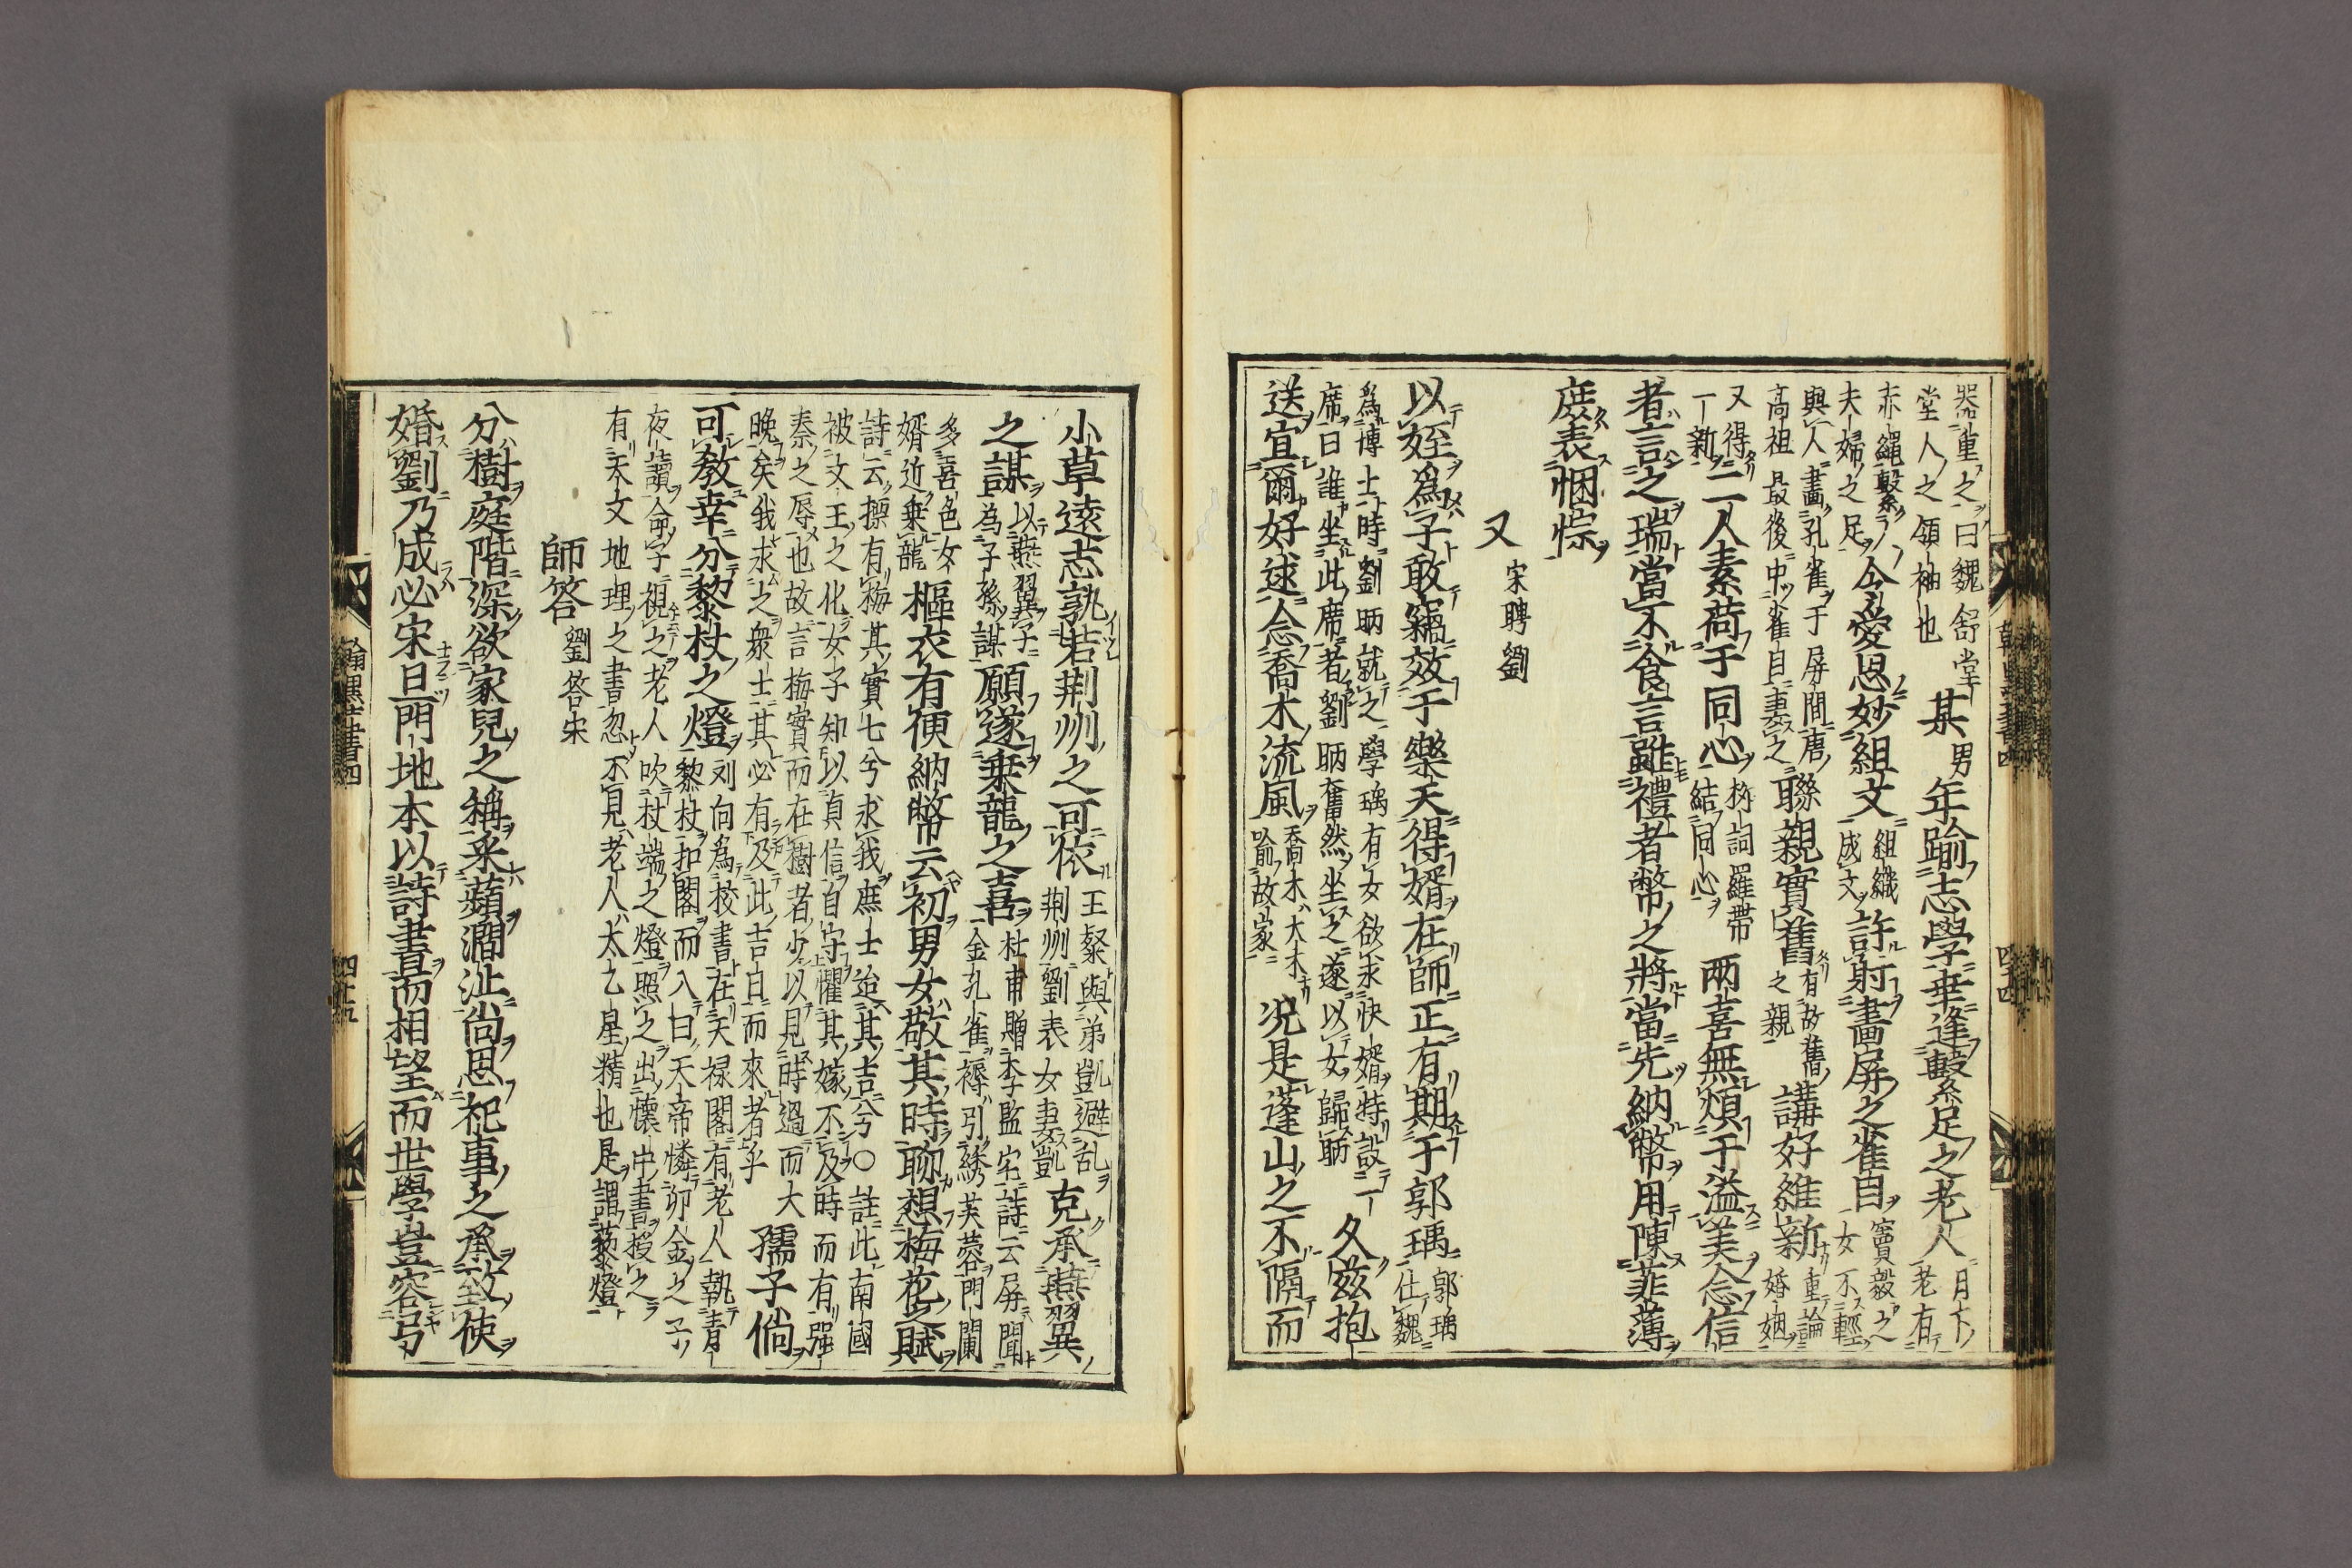 器重之曰魏舒堂
堂人之領袖也
某男年踰志學幸逢繫足之老人
月下老有
赤繩繫
夫婦之足
今愛恩妙組文
組織成文
許射畫屏之雀自
竇毅之女不輕
與人畫孔雀于屏間唐
高祖最後中雀目妻之
聯親實舊
有故舊之親
講好維新
重論婚姻
又得一新
二人素荷于同心
古詞羅帶結同心
两喜無煩于溢美念信
者言之瑞當不食言雖禮者幣之將當先納幣用陳菲薄
庶表悃悰
又 宋聘劉
以姪爲子敢竊效于樂天得婿在師正有期于郭瑀
郭瑀仕魏
爲博士時劉昞就之學瑀有女欲求快婿特設一
席曰誰坐此席者劉昞奮然坐之遂以女歸昞
久兹抱
送宜爾好逑念喬木流風
喬木大木
喻故家
况是蓬山之不隔而
小草遠志孰若荆州之可依
王粲與弟凱避乱
荆州劉表女妻凱
克承燕翼
之謀
以燕翼子
為子孫謀
願遂乗龍之喜
杜甫贈李監宅詩云屏開
金孔雀褥引綉芙蓉門闌
多喜色女
婿近乗龍
樞衣有便納幣云初男女敬其時聊想梅花之賦
詩云摽有梅其實七兮求我庶士迨其吉兮○註此南國
被文王之化女子知以貞信自守懼其嫁不及時而有强
暴之辱也故言梅實而在樹者少以見時過而大
晚矣我求之衆士其必有及此吉日而來者乎
孺子倘
可教幸分黎杖之燈
刘向為校書在天禄閣有老人執青
黎杖扣閣而入曰天帝憐卯金之子
夜讀命子視之老人吹杖端之燈照之出懷中書授之
有天文地理之書忽不見老人太乙星精也是謂藜燈
師答 劉答宋
分樹庭階深欲家兒之稱采蘋澗沚尚思祀事之承致使
婚劉乃成必宋旦門地本以詩書而相望而世學豈容弓
翰墨全書四
四十九